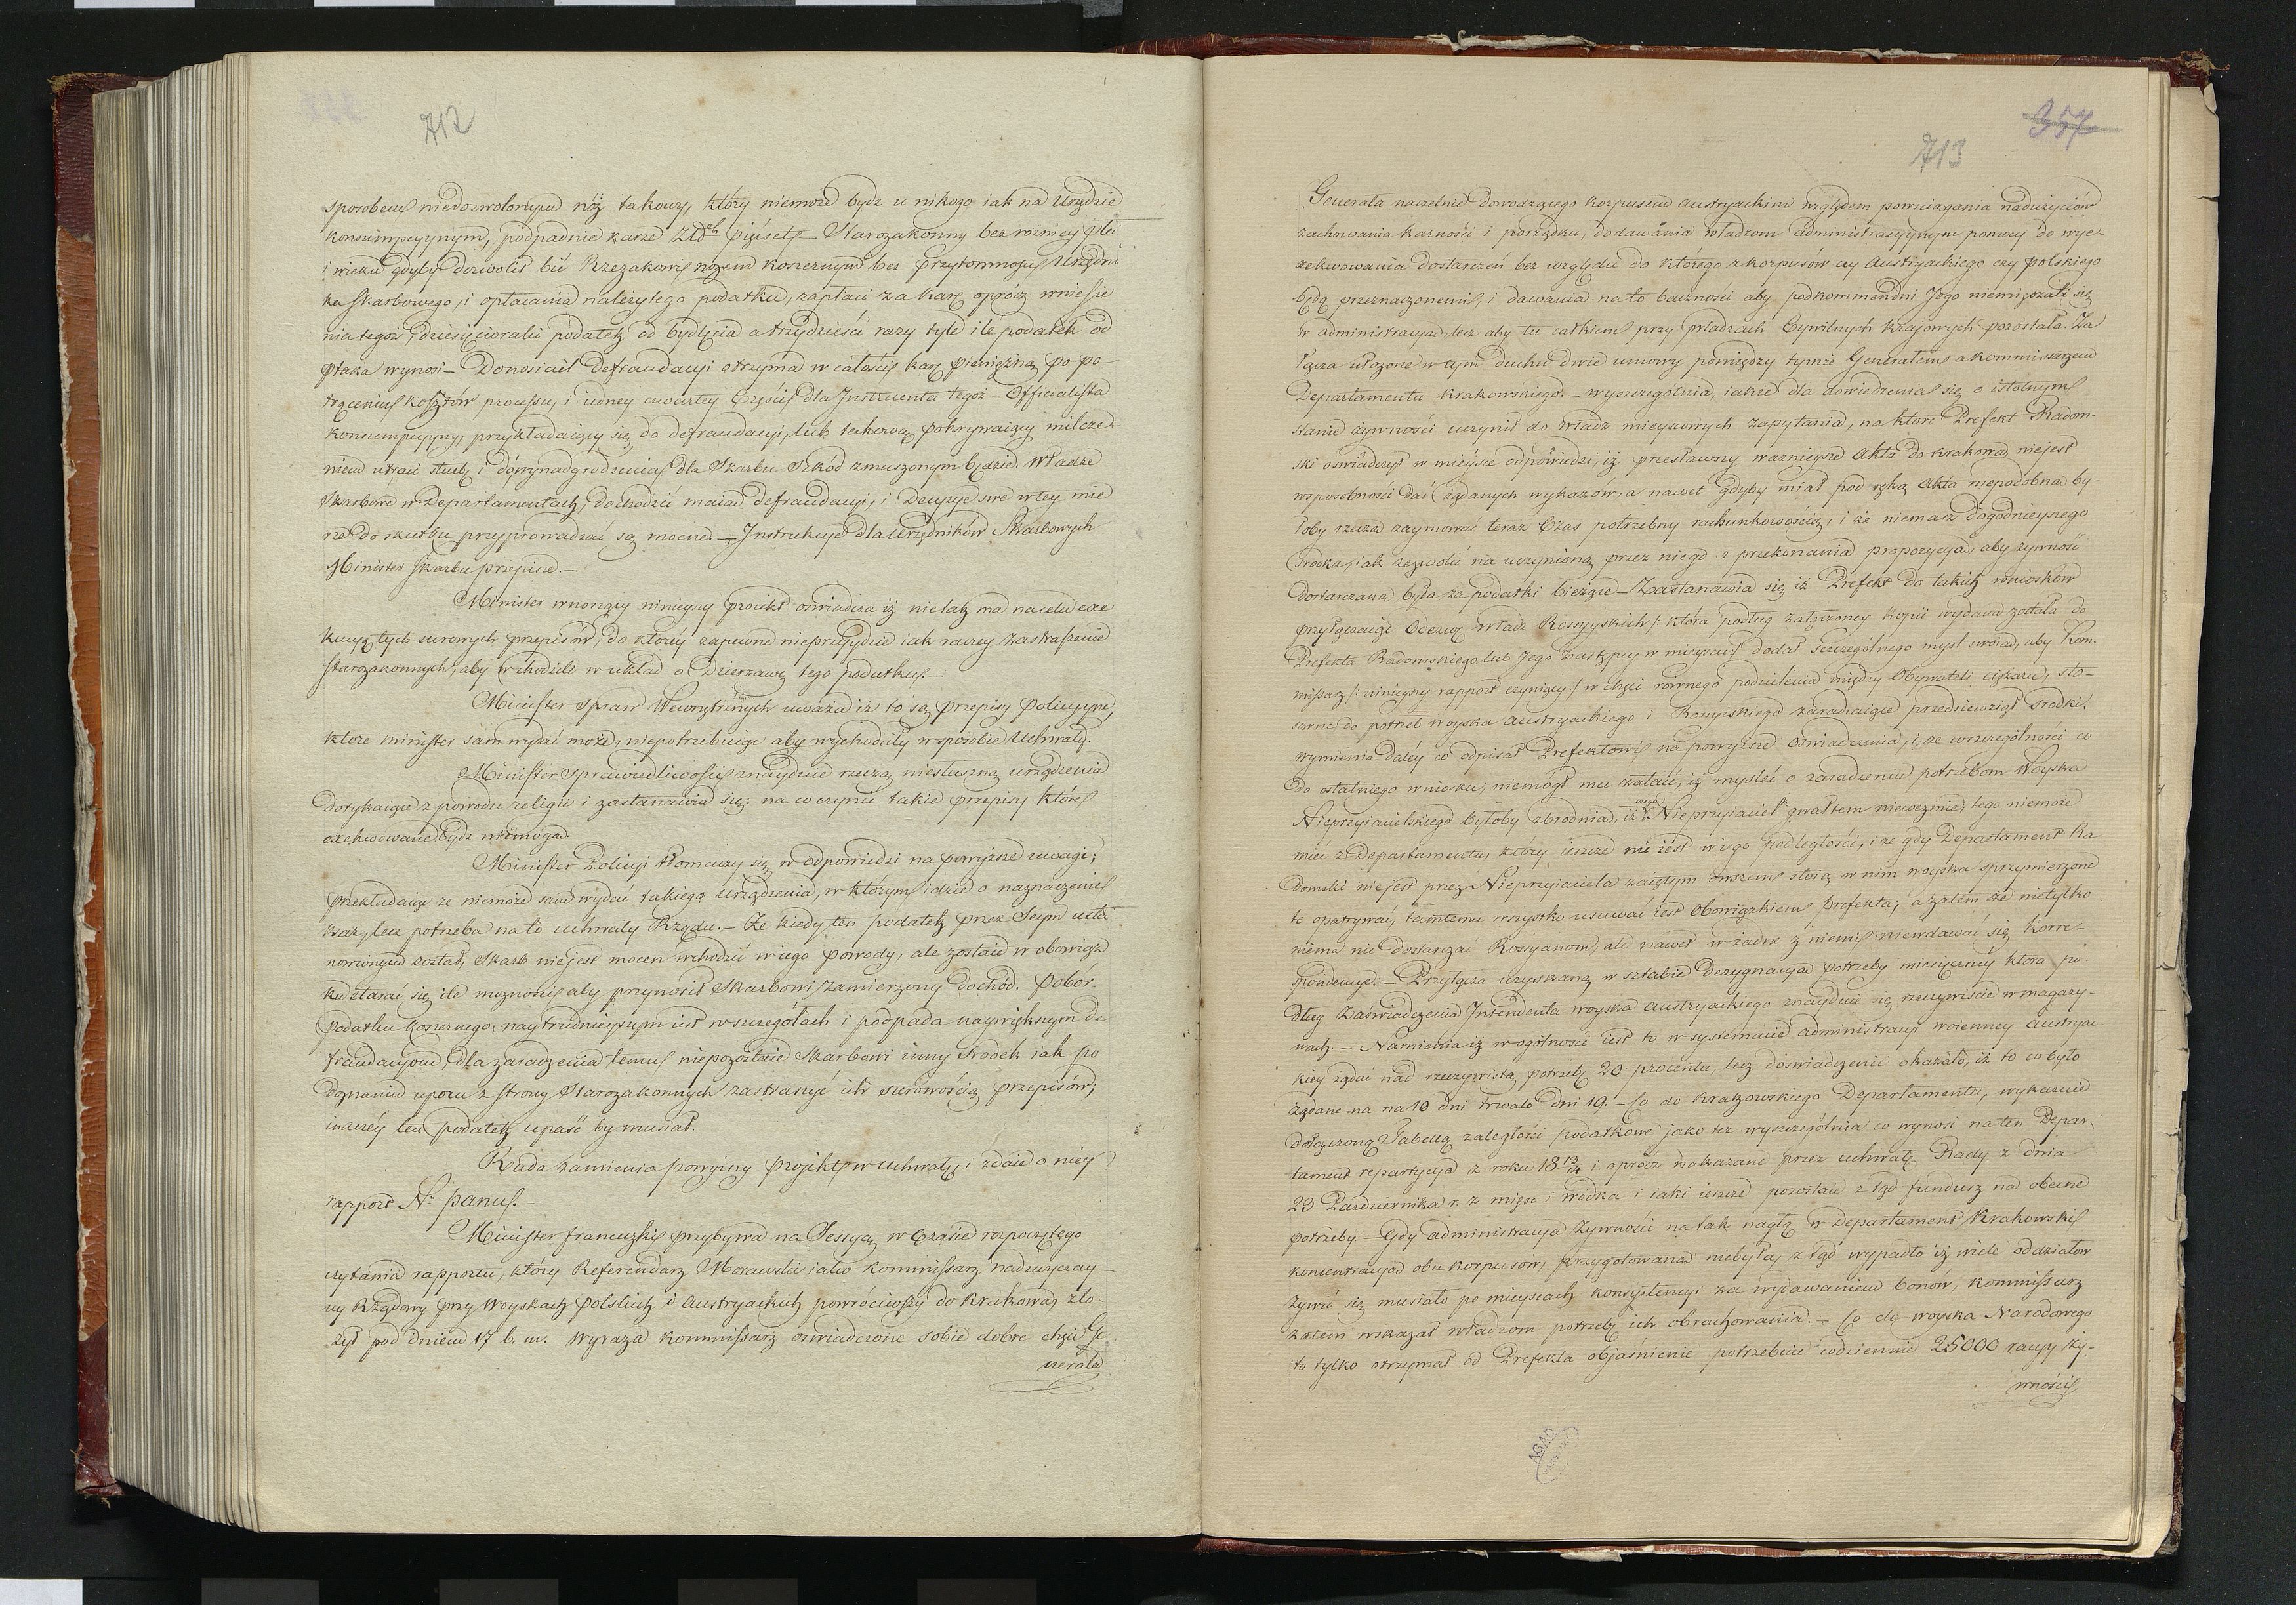 712
sposobem niedozwolonym nóż takowy, który niemoże bydź u nikogo iak na Urzędzie
konsumpcyynym, podpadnie karze Złd pięiset — Starozakonny bez rożnicy płci
i wieku gdyby dozwolił bić Rzezakowi nożem koszernym bez przytomności Urzędni
ka Skarbowego, i opłacania należytego podatku, zapłaci za karę oprócz wniesie
nia tegoż, dziesięcioraki podatek od bydlęcia a trzydzieści razy tyle ile podatek od
ptaka wynosi — Donosiciel Defraudacyi otrzyma w całości karę pieniężną po po-
trąceniu kosztów processu, i iedney czwartey Części dla Instruenta tegoż — Officialista
konsumpcyyny przykładaiący się do defraudacyi, lub takową pokrywaiący milcze-
niem utraci służbę i do wynadgrodzenia dla Skarbu Szkód zmuszonym będzie. Władze
Skarbowe w Departamentach, dochodzić maia defraudacyi, i Decyzye swe w tey mie
rze do skutku przyprowadzać są mocne — Instrukcye dla Urzędników Skarbowych
Minister Skarbu przepisze. —
Minister wnoszący ninieyszy proiekt oświadcza iż nie tak ma na celu exe
kucyą tych surowych przepisów, do któréy zapewne nieprzyydzie iak raczey zastraszenie
starozakonnych, aby wchodzili w układ o Dzierżawę tego podatku. —
Minister Spraw Wewnętrznych uważa iż to są przepisy policyyne,
które minister sam wydać może, niepotrzebuiąc aby wychodziły w sposobie Uchwały.
Minister Sprawiedliwości znayduie rzeczą niesłuszną urządzenia
dotykaiące z powodu religii i zastanawia się: na co czynić takie przepisy które
exekwowane bydź niemogą.
Minister Policyi tłomaczy się w odpowiedzi na powyższe uwagi;
przekładaiąc że niemoże sam wydać takiego urządzenia, w którym idzie o naznaczenie
kar, lecz potrzeba na to uchwały Rządu. — Że kiedy ten podatek przez Seym usta
nowionym został, Skarb nie jest mocen wchodzić w iego powody, ale zostaie w obowiąz
ku starać się ile możności, aby przynosił Skarbowi zamierzony dochód. Pobór
podatku koszernego naytrudnieyszym iest w szczegółach i podpada naywiększym de
fraudacyom, dla zaradzenia temu niepozostaie Skarbowi inny środek jak po
doznaniu uporu z strony Starozakonnych zastraszyć ich surowością przepisów;
inaczéy ten podatek upaść by musiał.
Rada zamienia powyższy projekt w uchwałę, i zdaie o niey
rapport N. panu. —
Minister francuzki przybywa na Sessyą w czasie rozpoczętego
czytania rapportu, który Referendarz Morawski iako kommissarz nadzwyczay-
ny Rządowy przy Woyskach Polskich i Austryackich powróciwszy do Krakowa, zło-
żył pod dniem 17 b. m. Wyraża kommissarz oświadczone sobie dobre chęci Ge
nerała
357
713
Generała naczelnie dowodzącego korpusem Austryackim względem powściągania nadużyciów
zachowania karności i porządku, dodawania władzom administracyynym pomocy do wye-
xekwowania dostarczeń bez względu do którego z korpusow czy Austryackiego czy Polskiego
będą przeznaczonemi, i dawania na to baczności aby podkommendni Jego niemięszali się
w administracyą, lecz aby ta całkiem przy władzach Cywilnych krajowych pozostała. Za
łącza ułożone w tym duchu dwie umowy pomiędzy tymże Generałem a kommissarzem
Departamentu Krakowskiego. — wyszczególnia, iakie dla dowiedzenia się o istotnym
stanie żywności uczynił do władz mieyscowych zapytania, na które Prefekt Radom-
ski oświadczył w mieyscu odpowiedzi, iż przesławszy ważnieysze Akta do Krakowa, niejest
w sposobności dać żądanych wykazów, a nawet gdyby miał pod ręką Akta niepodobna by-
łoby rzeczą zaymować teraz Czas potrzebny rachunkowością, i że niemasz dogodnieyszego
środka jak zezwolić na uczynioną przez niego z przekonania propozycyą, aby żywność
dostarczana była za podatki bieżące — Zastanawia się iż Prefekt do takich wniosków
przyłączaiąc Odezwę Władz Rossyyskich /: która podług załączoney kopii wydana została do
Prefekta Radomskiego lub Jego zastępcy w mieyscu :/ dodał szczególnego mysl swoią, aby Kom-
missarz /: ninieyszy rapport czyniący :/ w chęci równego podzielenia między Obywateli ciężaru, sto-
sowne do potrzeb woyska Austryackiego i Rossyiskiego zaradzaiące przedsięwziął środki.
Wymienia daléy co odpisał Prefektowi na powyższe oświadczenia, i że w szczególności co
do ostatniego wniosku, niemógł mu zataić, iż mysleć o zaradzeniu potrzebom Woyska
Nieprzyiacielskiego byłoby zbrodnią, iż czego Nieprzyiaciel gwałtem niewezmie, tego niemoże
mieć z Departamentu, który ieszcze nie iest w iego podległości, i że gdy Departament Ra
domski niejest przez Nieprzyiaciela zaiętym owszem stoią w nim woyska sprzymierzone
te opatrywać, tamtemu wszystko usuwać iest Obowiązkiem Prefekta; a zatem że nietylko
niema nic dostarczać Rossyanom, ale nawet w żadne z niemi niewdawać się korre-
spondencye. — Przyłącza uzyskaną w sztabie Dezygnacyą potrzeby miesięcznéy która po-
dług Zaświadczenia Intendenta woyska Austryackiego znayduie się rzeczywiście w magazy-
nach. — Namienia iż w ogólności iest to w systemacie administracyi woienney Austryac
kiey żądać nad rzeczywistą potrzebę 20 procentu, lecz doświadczenie okazało, iż to co było
żądane na na 10 dni trwało dni 19. — Co do Krakowskiego Departamentu, wykazuie
dołączoną Tabellą zaległości podatkowe jako też wyszczególnia co wynosi na ten Depar-
tament repartycya z roku 18 13/14 i oprócz nakazane przez uchwałę Rady z dnia
23 Pazdziernika r. z mięso i wódka i iaki ieszcze pozostaie z tąd fundusz na obecne
potrzeby — Gdy administracya żywności na tak nagłą w Departament Krakowski
koncentracyą obu korpusów, przygotowaną niebyła, z tąd wypadło iż wiele oddziałow
żywić się musiało po mieyscach konsystencyi za wydawaniem bonów, kommissarz
zatem wskazał władzom potrzebę ich obrachowania. — Co do woyska Narodowego
to tylko otrzymał od Prefekta objaśnienie potrzebuie codziennie 25000 racyy ży-
wności
AGAD